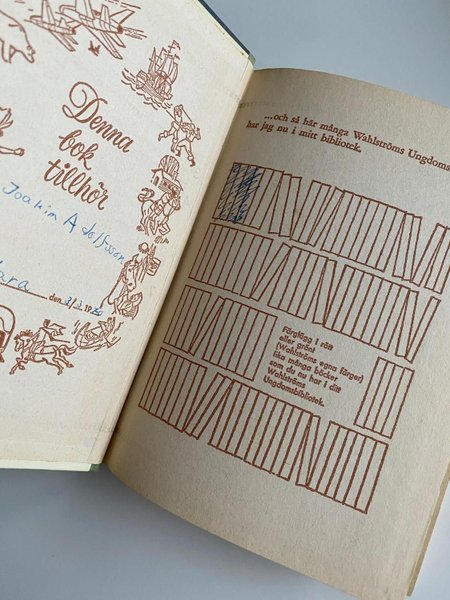 Denna
bok
tillhör
Joakim Adolfsson
den 3/3 19
...och så här många Wahlströms Ungdoms
har jag nu i mitt bibliotek.
Färglägg i rött
eller grönt
(Wahlströms egna färger)
lika många böcker
som du nu har i ditt
Wahlströms
Ungdomsbibliotek.